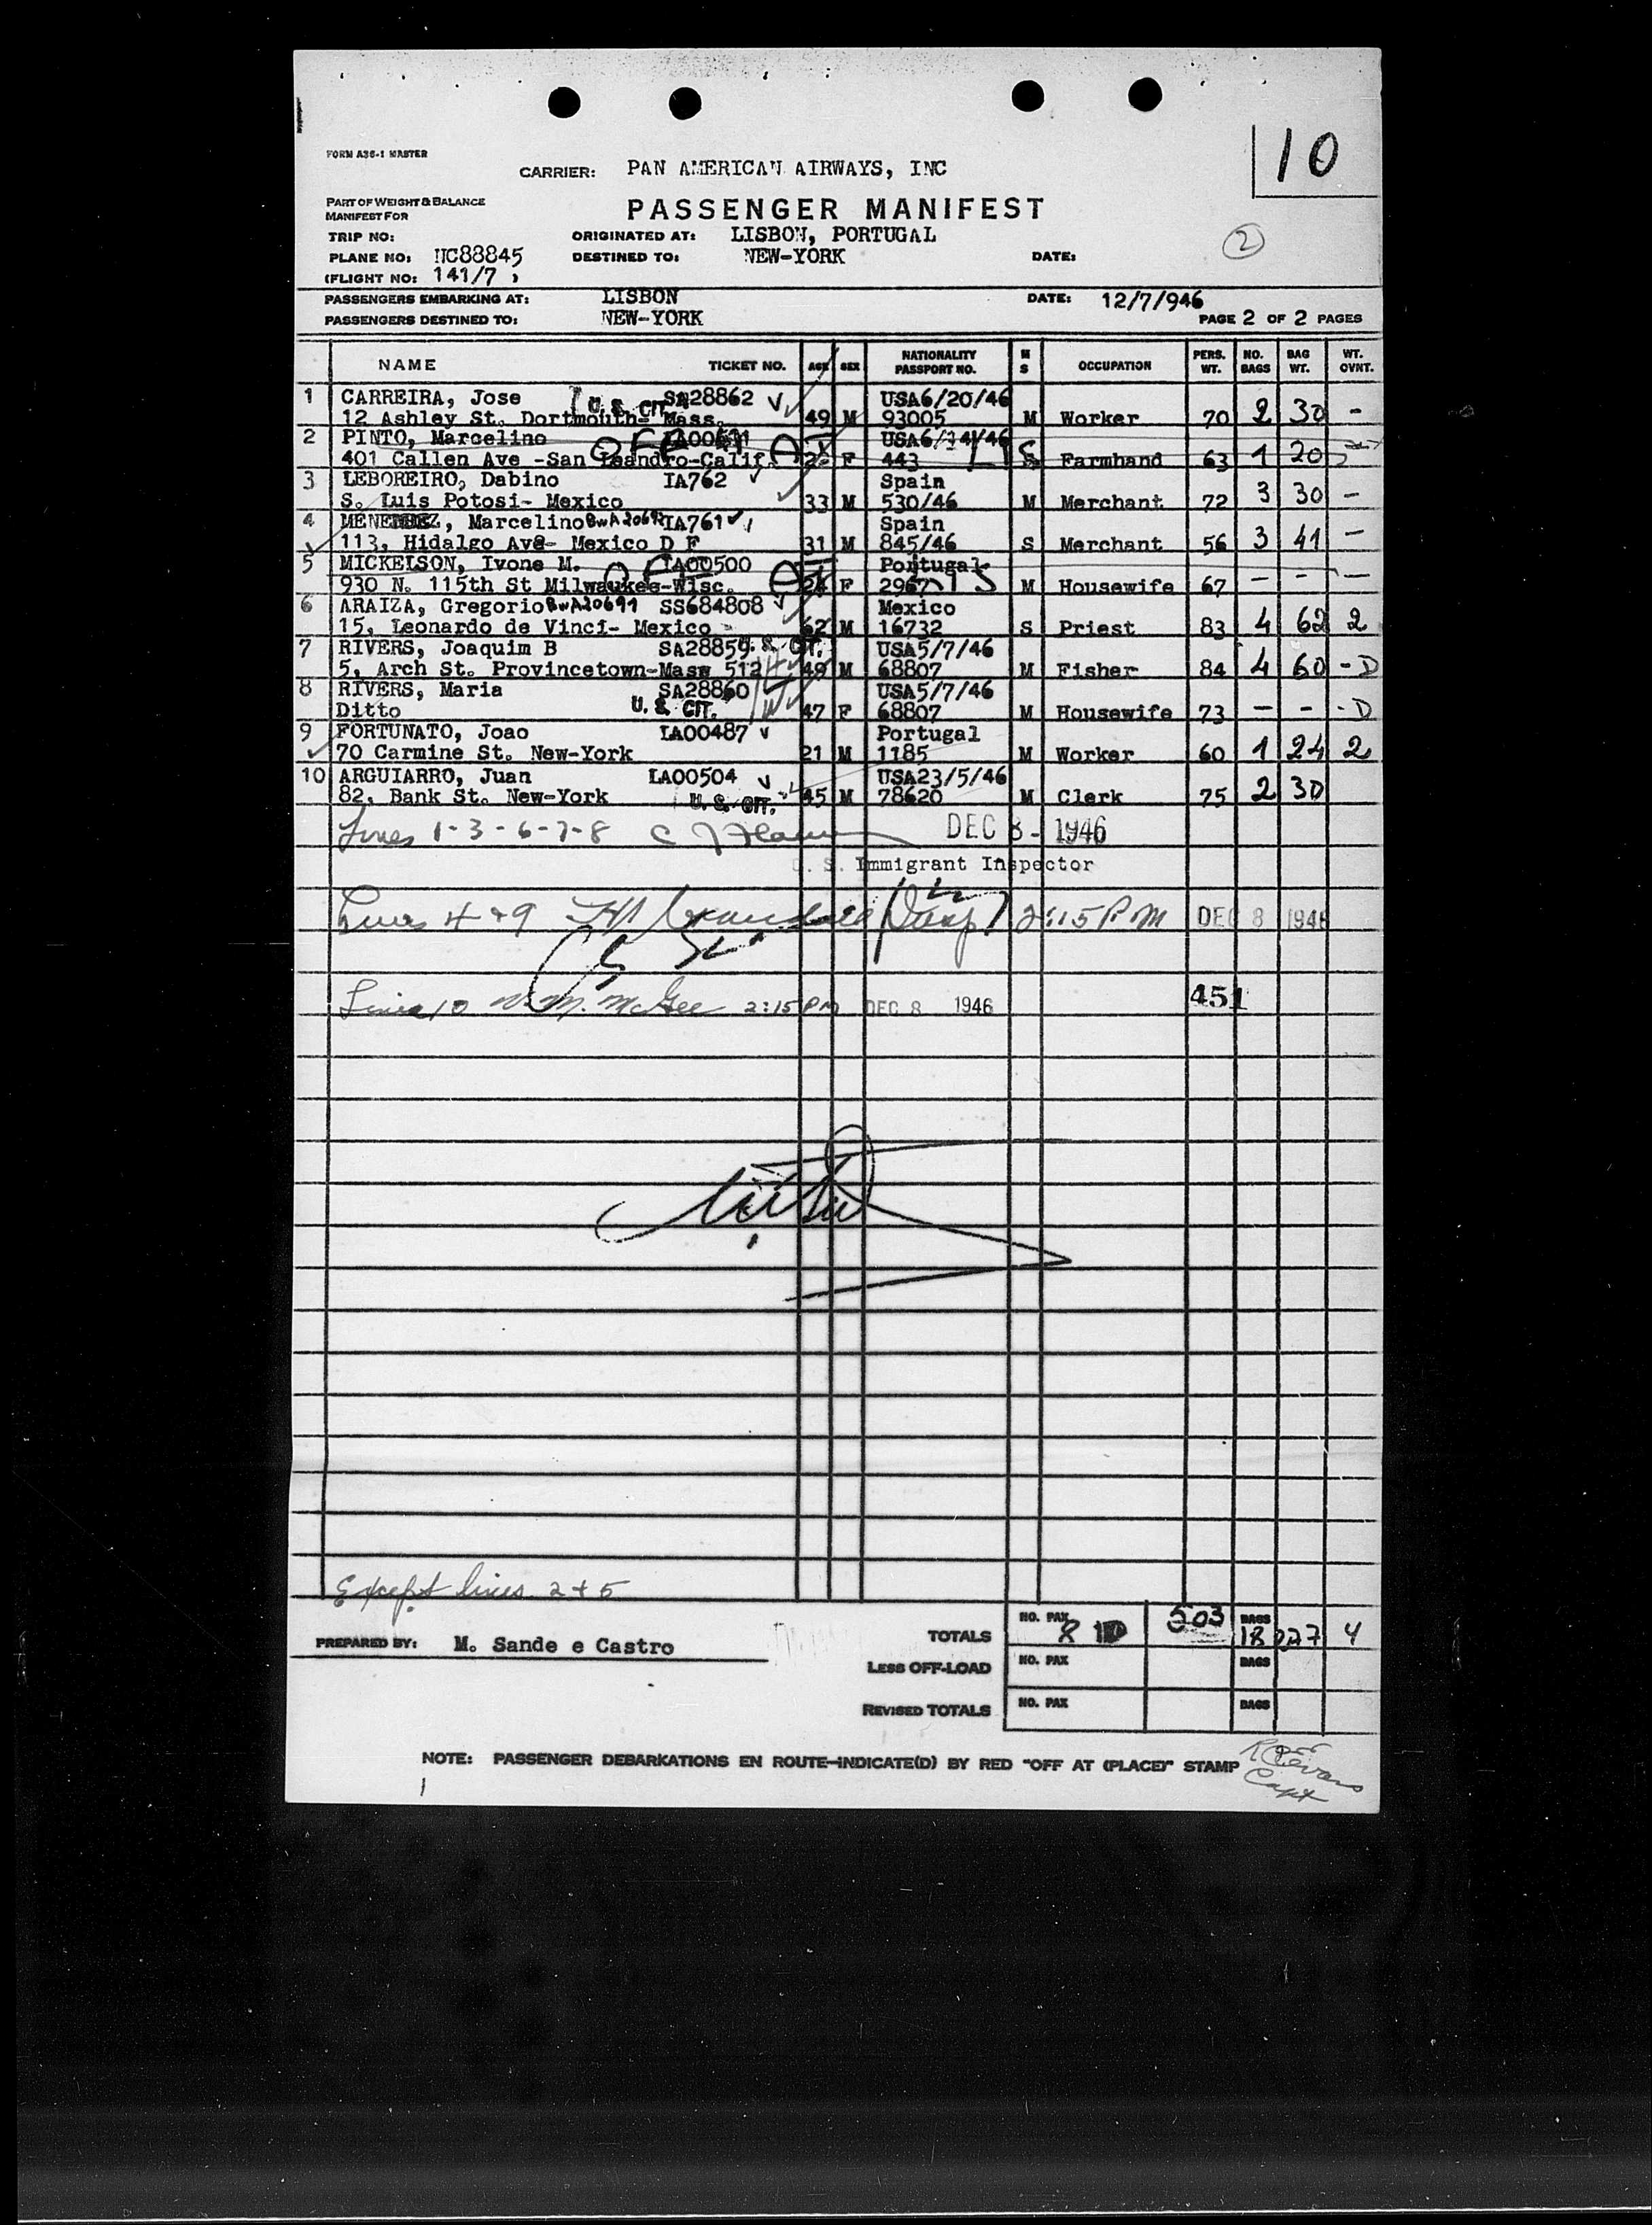 FORM A36-1 MASTER
CARRIER: PAN AMERICAN AIRWAYS, INC
10
PART OF WEIGHT & BALANCE
MANIFEST FOR
PASSENGER MANIFEST
TRIP NO:
ORIGINATED AT: LISBON, PORTUGAL
2
PLANE NO: NC88845
DESTINED TO: NEW-YORK
DATE:
(FLIGHT NO: 141/7 )
PASSENGERS EMBARKING AT: LISBON
DATE: 12/7/946
PASSENGERS DESTINED TO: NEW-YORK
PAGE 2 OF 2 PAGES
NAME TICKET NO. AGE SEX NATIONALITY PASSPORT NO. M S OCCUPATION PERS. WT. NO. BAGS BAG WT. WT. OVNT.
1 CARREIRA, Jose U. S. CIT. SA28862 USA6/20/46
12 Ashley St. Dortmouth- Mass. 49 M 93005 M Worker 70 2 30 -
2 PINTO, Marcelino
401 Callen Ave -San Leandro-Calif. F 443 Farmhand 63 1 20
3 LEBOREIRO, Dabino IA762 Spain
S. Luis Potosi- Mexico 33 M 530/46 M Merchant 72 3 30 -
4 MENENDEZ, Marcelino IA761 Spain
113, Hidalgo Ave- Mexico D F 31 M 845/46 S Merchant 56 3 41 -
5 MICKELSON, Ivone M. LA00500 Portugal
930 N. 115th St Milwaukee-Wisc. F 2967 M Housewife 67 - - -
6 ARAIZA, Gregorio BWA20691 SS684808 Mexico
15, Leonardo de Vinci- Mexico 62 M 16732 S Priest 83 4 62 2
7 RIVERS, Joaquim B SA28859 U. S. CIT. USA5/7/46
5, Arch St. Provincetown-Mass 512 49 M 68807 M Fisher 84 4 60 - D
8 RIVERS, Maria SA28860 USA5/7/46
Ditto U. S. CIT. 47 F 68807 M Housewife 73 - - - D
9 FORTUNATO, Joao LA00487 Portugal
70 Carmine St. New-York 21 M 1185 M Worker 60 1 24 2
10 ARGUIARRO, Juan LA00504 USA23/5/46
82, Bank St. New-York U. S. CIT. 45 M 78620 M Clerk 75 2 30
Lines 1-3-6-7-8 DEC 8 - 1946
U. S. Immigrant Inspector
Lines 4 + 9 2:15 PM DEC 8 1946
Line 10 W. M. McGee 2:15 PM DEC 8 1946
451
Except lines 2 + 5
PREPARED BY: M. Sande e Castro
TOTALS NO. PAX 8 10 503 BAGS 18 227 4
LESS OFF-LOAD NO. PAX BAGS
REVISED TOTALS NO. PAX BAGS
NOTE: PASSENGER DEBARKATIONS EN ROUTE-INDICATE(D) BY RED "OFF AT (PLACE)" STAMP
Evans
Capt